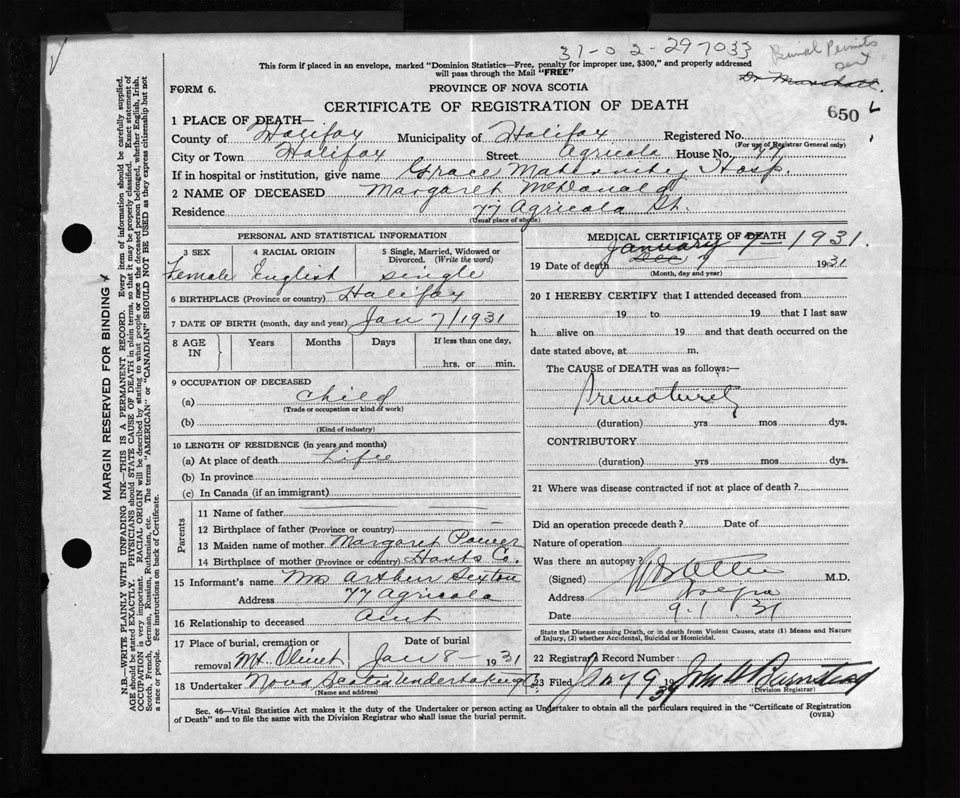 31-02-297033
Burial Permits
sent
This form if placed in an envelope, marked "Dominion Statistics—Free, penalty for improper use, $300," and properly addressed
will pass through the Mail "FREE"
Dr Marshall
FORM 6.
PROVINCE OF NOVA SCOTIA
CERTIFICATE OF REGISTRATION OF DEATH
650
1 PLACE OF DEATH—
County of Halifax Municipality of Halifax Registered No.
(For use of Registrar General only)
City or Town Halifax Street Agricola House No. 77
If in hospital or institution, give name Grace Maternity Hosp.
2 NAME OF DECEASED Margaret McDonald
Residence 77 Agricola St.
(Usual place of abode)
PERSONAL AND STATISTICAL INFORMATION
3 SEX 4 RACIAL ORIGIN 5 Single, Married, Widowed or
Divorced. (Write the word)
Female English Single
6 BIRTHPLACE (Province or country) Halifax
7 DATE OF BIRTH (month, day and year) Jan 7/1931
8 AGE IN Years Months Days If less than one day,
hrs. or min.
9 OCCUPATION OF DECEASED
(a) Child
(Trade or occupation or kind of work)
(b)
(Kind of industry)
10 LENGTH OF RESIDENCE (in years and months)
(a) At place of death Life
(b) In province
(c) In Canada (if an immigrant)
Parents
11 Name of father
12 Birthplace of father (Province or country)
13 Maiden name of mother Margaret Power
14 Birthplace of mother (Province or country) Hants Co.
15 Informant's name Mrs Arthur Sexton
Address 77 Agricola
16 Relationship to deceased Aunt
17 Place of burial, cremation or Date of burial
removal Mt. Olivet Jan 8 1931
18 Undertaker Nova Scotia Undertaking Co
(Name and address)
MEDICAL CERTIFICATE OF DEATH
January 7 - 1931.
19 Date of death Dec 7 1931
(Month, day and year)
20 I HEREBY CERTIFY that I attended deceased from
19 to 19 that I last saw
h alive on 19 and that death occurred on the
date stated above, at m.
The CAUSE of DEATH was as follows:—
Prematurity
(duration) yrs mos dys.
CONTRIBUTORY
(duration) yrs mos dys.
21 Where was disease contracted if not at place of death?
Did an operation precede death? Date of
Nature of operation
Was there an autopsy?
(Signed) M.D.
Address
Date 9.1.31
State the Disease causing Death, or in death from Violent Causes, state (1) Means and Nature
of Injury, (2) whether Accidental, Suicidal or Homicidal.
22 Registrar's Record Number:
23 Filed Jan 9 1931 John
(Division Registrar)
Sec. 46—Vital Statistics Act makes it the duty of the Undertaker or person acting as Undertaker to obtain all the particulars required in the "Certificate of Registration
of Death" and to file the same with the Division Registrar who shall issue the burial permit. (OVER)
MARGIN RESERVED FOR BINDING
N.B.—WRITE PLAINLY WITH UNFADING INK—THIS IS A PERMANENT RECORD. Every item of information should be carefully supplied.
AGE should be stated EXACTLY. PHYSICIANS should STATE CAUSE OF DEATH in plain terms, so that it may be properly classified. Exact statement of
OCCUPATION is very important. RACIAL ORIGIN will be described by stating to what people or race the deceased person belonged, whether English, Irish,
Scotch, French, German, Russian, Ruthenian, etc. The terms "AMERICAN" or "CANADIAN" SHOULD NOT BE USED as they express citizenship but not
a race or people. See instructions on back of Certificate.